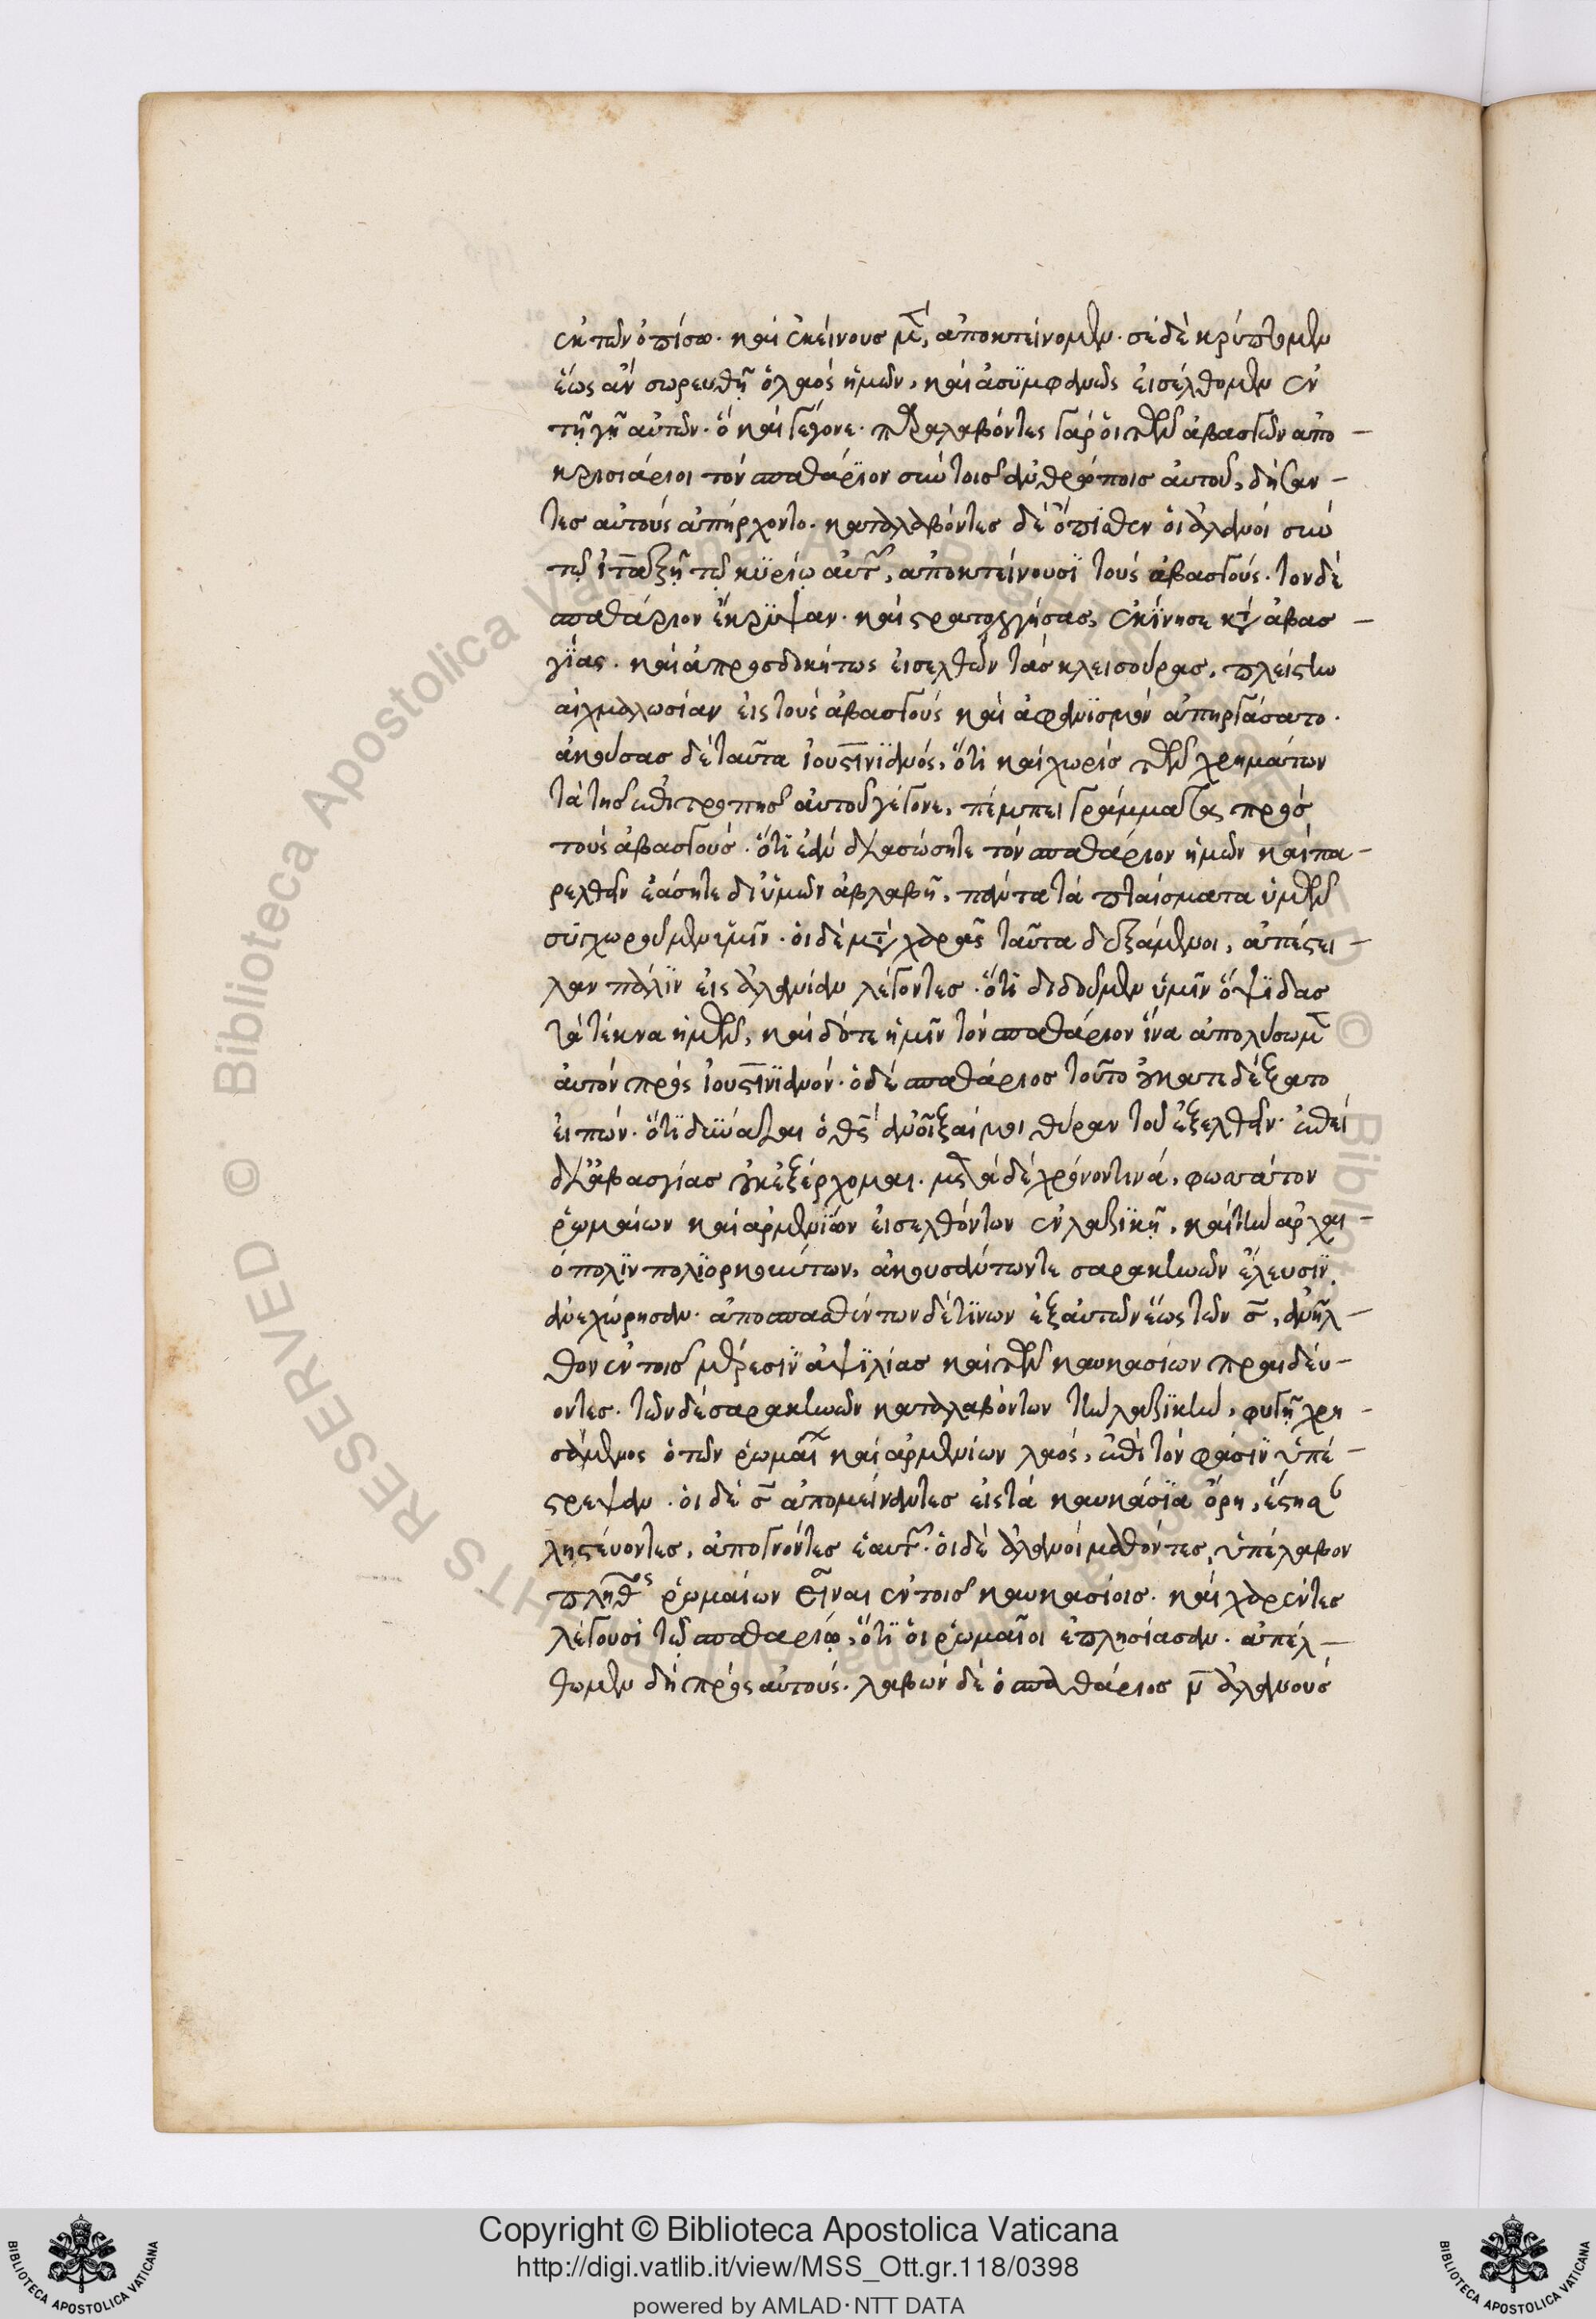 ἐκ τῶν ὀπίσω. καὶ ἐκείνους μὲν, ἀποκτείνομεν. σὲ δὲ κρύπτομεν
ἕως ἂν σωρευθῇ ὁ λαὸς ἡμῶν, καὶ ἀσϋμφανῶς εἰσέλθομεν ἐν
τῇ γῇ αὐτῶν. ὃ καὶ γέγονε. παραλαβόντες γὰρ οἱ τῶν ἀβασγῶν ἀπο
κρισιάριοι τὸν σπαθάριον σὺν τοῖς ἀνθρώποις αὐτοῦ, δήσαν
τες αὐτοὺς ἀπήρχοντο. καταλαβόντες δὲ ὄπισθεν οἱ ἀλανοὶ σὺν
τῷ ἰταξῇ τῷ κϋρίῳ αὐτῶν, ἀποκτείνουσϊ τοὺς ἀβασγούς. τον δὲ
σπαθάριον ἔκρϋψαν. καὶ στρατολογήσας, ἐκίνησε κατὰ ἀβασ
γΐας. καὶ ἀπροσδοκήτως εἰσελθὼν τὰς κλεισούρας, πλείστην
αἰχμαλωσίαν εἰς τοὺς ἀβασγοὺς καὶ ἀφανϊσμὸν ἀπηργάσατο.
ἀκούσας δὲ ταῦτα ἰουστινϊανός, ὅτι καὶ χωρὶς τῶν χρημάτων
τὰ τῆς ἐπιτροπῆς αὐτοῦ γέγονε, πέμπει γράμματα πρὸς
τοὺς ἀβασγούς. ὅτϊ ἐὰν διασώσητε τὸν σπαθάριον ἡμῶν καὶ πα
ρελθεῖν ἐάσητε δι' ὑμῶν ἀβλαβῆ, πάντα τὰ πταίσματα ὑμῶν
συγχωροῦμεν ὑμῖν. οἱ δὲ μετὰ χαρᾶς ταῦτα δεξάμενοι, ἀπέστει
λαν πάλϊν εἰς ἀλανίαν λέγοντες. ὅτϊ διδοῦμεν ὑμῖν ὄψϊδας
τὰ τέκνα ἡμῶν, καὶ δότε ἡμῖν τὸν σπαθάριον ἵνα ἀπολύσωμεν
αὐτὸν πρὸς ἰουστινϊανόν. ὁ δὲ σπαθάριος τοῦτο οὐ κατεδέξατο
εἰπών. ὅτϊ δύναταί ὁ θς ἀνοῖξαί μοι θύραν τοῦ ἐξελθεῖν. ἐπεὶ
διὰ ἀβασγίας οὐκ ἐξέρχομαι. μετὰ δὲ χρόνον τινὰ, φωσσάτον
ῥωμαίων καὶ ἀρμενΐων εἰσελθόντων ἐν λαζϊκῇ, καὶ τὴν ἀρχαι
όπολϊν πολϊορκούντων, ἀκουσάντων τε σαρακηνῶν ἔλευσϊν,
ἀνεχώρησαν. ἀποσπασθέντων δέ τϊνων ἐξ αὐτῶν ἕως τῶν σ, ἀνῆλ
θον ἐν τοῖς μέρεσϊν ἀψϊλίας καὶ τῶν καυκασίων πραιδεύ
οντες. τῶν δὲ σαρακηνῶν καταλαβόντων τὴν λαζϊκὴν, φυγῇ χρη
σάμενος ὁ τῶν ῥωμαίων καὶ ἀρμενίων λαός, ἐπὶ τὸν φάσϊν ὑπέ
στρεψαν. οἱ δὲ σ ἀπομείναντες εἰς τὰ καυκάσϊα ὄρη, ἔστησαν
ληστεύοντες, ἀπογνόντες ἑαυτῶν. οἱ δὲ ἀλανοὶ μαθόντες, ὑπέλαβον
πλῆθος ῥωμαίων εἶναι ἐν τοῖς καυκασίοις. καὶ χαρέντες
λέγουσϊ τῷ σπαθαρίῳ, ὅτϊ οἱ ῥωμαῖοι ἐπλησίασαν. ἀπέλ
θωμεν δὴ πρὸς αὐτούς. λαβὼν δὲ ὁ σπαθάριος ν ἀλανοὺς
Copyright © Biblioteca Apostolica Vaticana
http://digi.vatlib.it/view/MSS_Ott.gr.118/0398
powered by AMLAD·NTT DATA